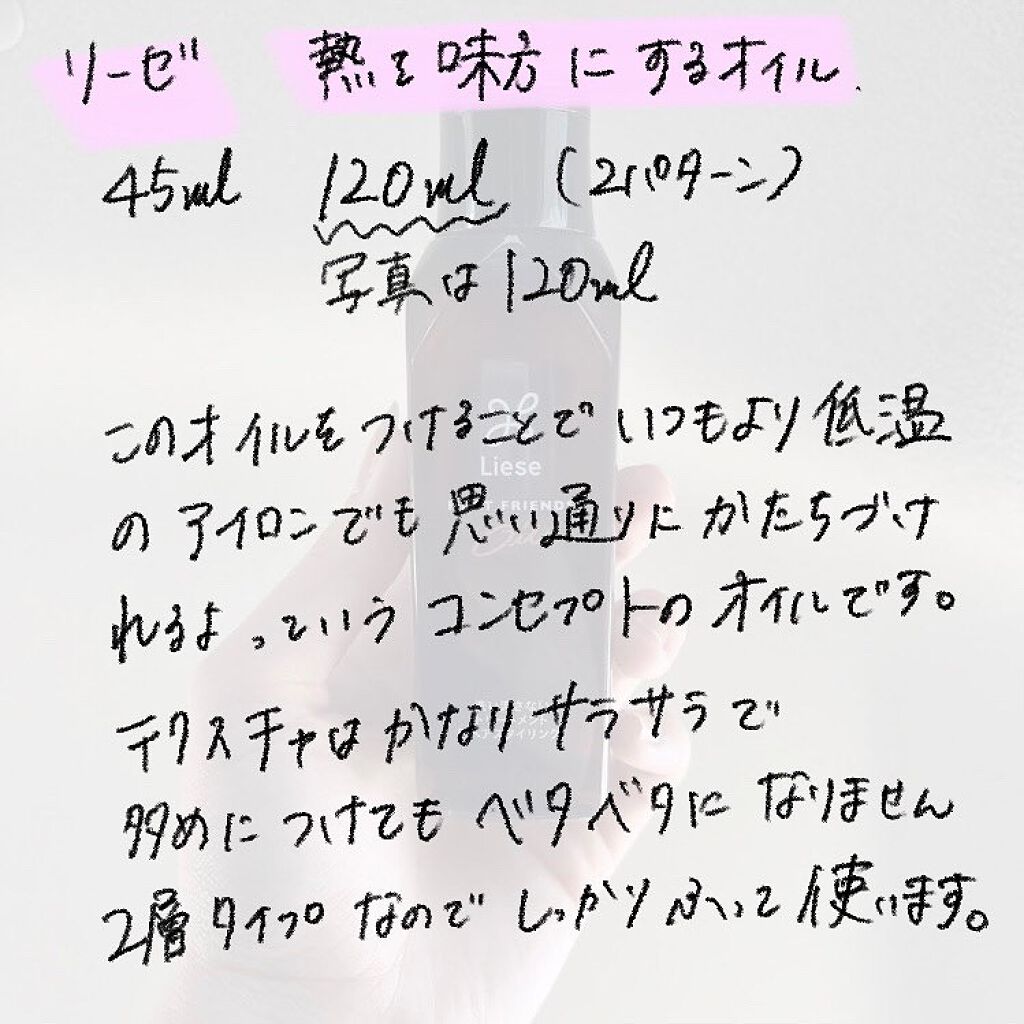 リーゼ 熱を味方にするオイル.
45ml 120ml (2パターン)
写真は120ml
このオイルをつけることでいつもより低温
のアイロンでも思い通りにかたちづけ
れるよっていうコンセプトのオイルです。
テクスチャはかなりサラサラで
多めにつけてもベタベタになりません
2層タイプなのでしっかりふって使います。
Liese